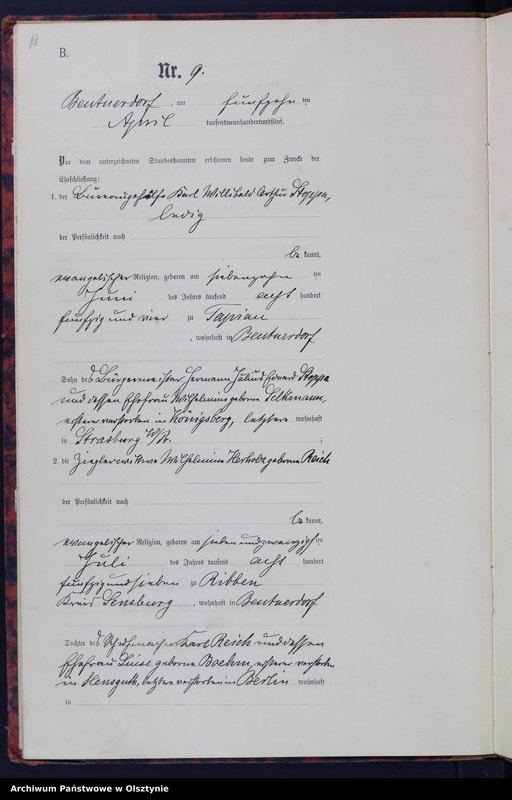 18
B.
Nr. 9.
Beutnerdorf, am fünfzehnten
April tausendneunhundertundfünf.
Vor dem unterzeichneten Standesbeamten erschienen heute zum Zwecke der
Eheschließung:
1. der Bureaugehülfe Karl Willibald Arthur Stoppa,
ledig
der Persönlichkeit nach
be kannt,
evangelischer Religion, geboren am siebenzehn ten
Juni des Jahres tausend acht hundert
fünfzig und vier zu Tapiau
, wohnhaft in Beutnerdorf
Sohn des Bürgermeister Hermann Julius Eduard Stoppa
und dessen Ehefrau Wilhelmine geborne
erstere verstorben in Königsberg, letztere wohnhaft
in Strasburg W/Pr. ;
2. die Wilhelmine geborne Reich
der Persönlichkeit nach
be kannt,
evangelischer Religion, geboren am sieben und zwanzigsten
Juli des Jahres tausend acht hundert
fünfzig und sieben zu Ribben
Kreis Sensburg, wohnhaft in Beutnerdorf
Tochter des Schuhmacher Karl Reich und dessen
Ehefrau Luise geborne Boehm, ersterer verstorben
in letztere verstorben in Berlin wohnhaft
in
Archiwum Państwowe w Olsztynie